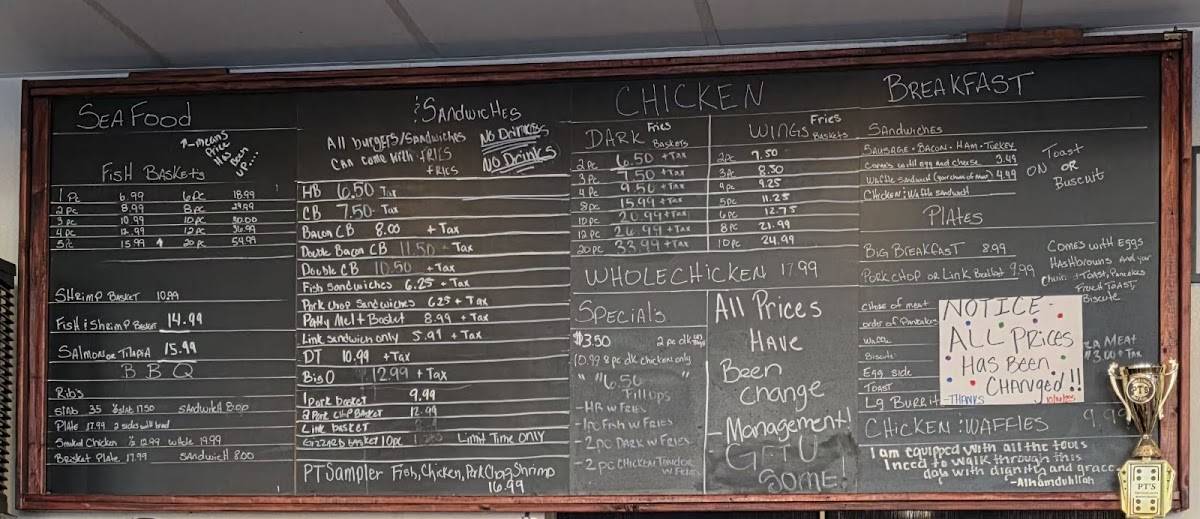 SEAFOOD
↑-means
Price
Has
Been
up....
FISH BASKETS
1 Pc 6.99 6 pc 18.99
2 pc 8.99 8 pc
3 pc 10.99 10 pc 30.00
4 pc 12.99 12 pc 36.99
5 pc 15.99 20 pc 54.99
SHRIMP BASKET 10.99
FISH & SHRIMP BASKET 14.99
SALMON OR TILAPIA 15.99
BBQ
Ribs
SLAB 35 ½ SLAB 17.50 SANDWICH 8.00
PLATE 17.99 2 sides with bread
Smoked Chicken ½ 12.99 whole 19.99
Brisket Plate 17.99 SANDWICH 8.00
SANDWICHES
All burgers/Sandwiches
can come with FRIES
FRIES
NO Drinks
NO Drinks
HB 6.50 Tax
CB 7.50 Tax
Bacon CB 8.00 + Tax
Double Bacon CB 11.50 Tax
Double CB 10.50 + Tax
Fish Sandwiches 6.25 + Tax
Pork chop Sandwiches 6.25 + Tax
Patty Melt Basket 8.99 + Tax
Link Sandwich only 5.99 + Tax
DT 10.99 + Tax
Big O 12.99 + Tax
1 Pork basket 9.99
2 Pork Chop Basket 12.99
Link basket
GIZZARD BASKET 10pc Limit Time ONLY
PT Sampler Fish, Chicken, Pork Chop, Shrimp
16.99
CHICKEN
DARK Fries Baskets
2 pc 6.50 + Tax
3 pc 7.50 + Tax
4 pc 9.50 + Tax
8 pc 15.99 + Tax
10 pc 20.99 + Tax
12 pc 26.99 + Tax
20 pc 33.99 + Tax
WINGS Fries Baskets
2 pc 7.50
3 pc 8.50
4 pc 9.25
5 pc 11.25
6 pc 12.75
8 pc 21.99
10 pc 24.99
WHOLE CHICKEN 17.99
SPECIALS
$3.50 2 pc dk
10.99 8 pc dk chicken only
" $6.50 "
Fill ups
- HB w FRIES
- 1 pc FISH w FRIES
- 2 pc DARK w FRIES
- 2 pc CHICKEN TENDER
w FRIES
All Prices
Have
Been
change
- Management!
GET U
SOME!
BREAKFAST
SANDWICHES
SAUSAGE · BACON · HAM · TURKEY
Comes with egg and cheese 3.49
Waffle Sandwich (your choice of meat) 4.49
Chicken & Waffle Sandwich
ON Toast
OR
Buscuit
PLATES
BIG BREAKFAST 8.99
PORK CHOP OR LINK Breakfast 9.99
Comes with Eggs
Hashbrowns And your
Choice of Toast, Pancakes
French TOAST,
Biscute
Choice of meat
order of Pancakes
Waffle
Biscute
Egg side
TOAST
Lg Burrit
NOTICE -
ALL PRICES
HAS BEEN
CHANGED!!
-THANKS
MEAT
$3.00 + Tax
CHICKEN & WAFFLES 9.99
I am equipped with all the tools
I need to walk through this
day with dignity and grace
-Alhamdulillah
PT'S